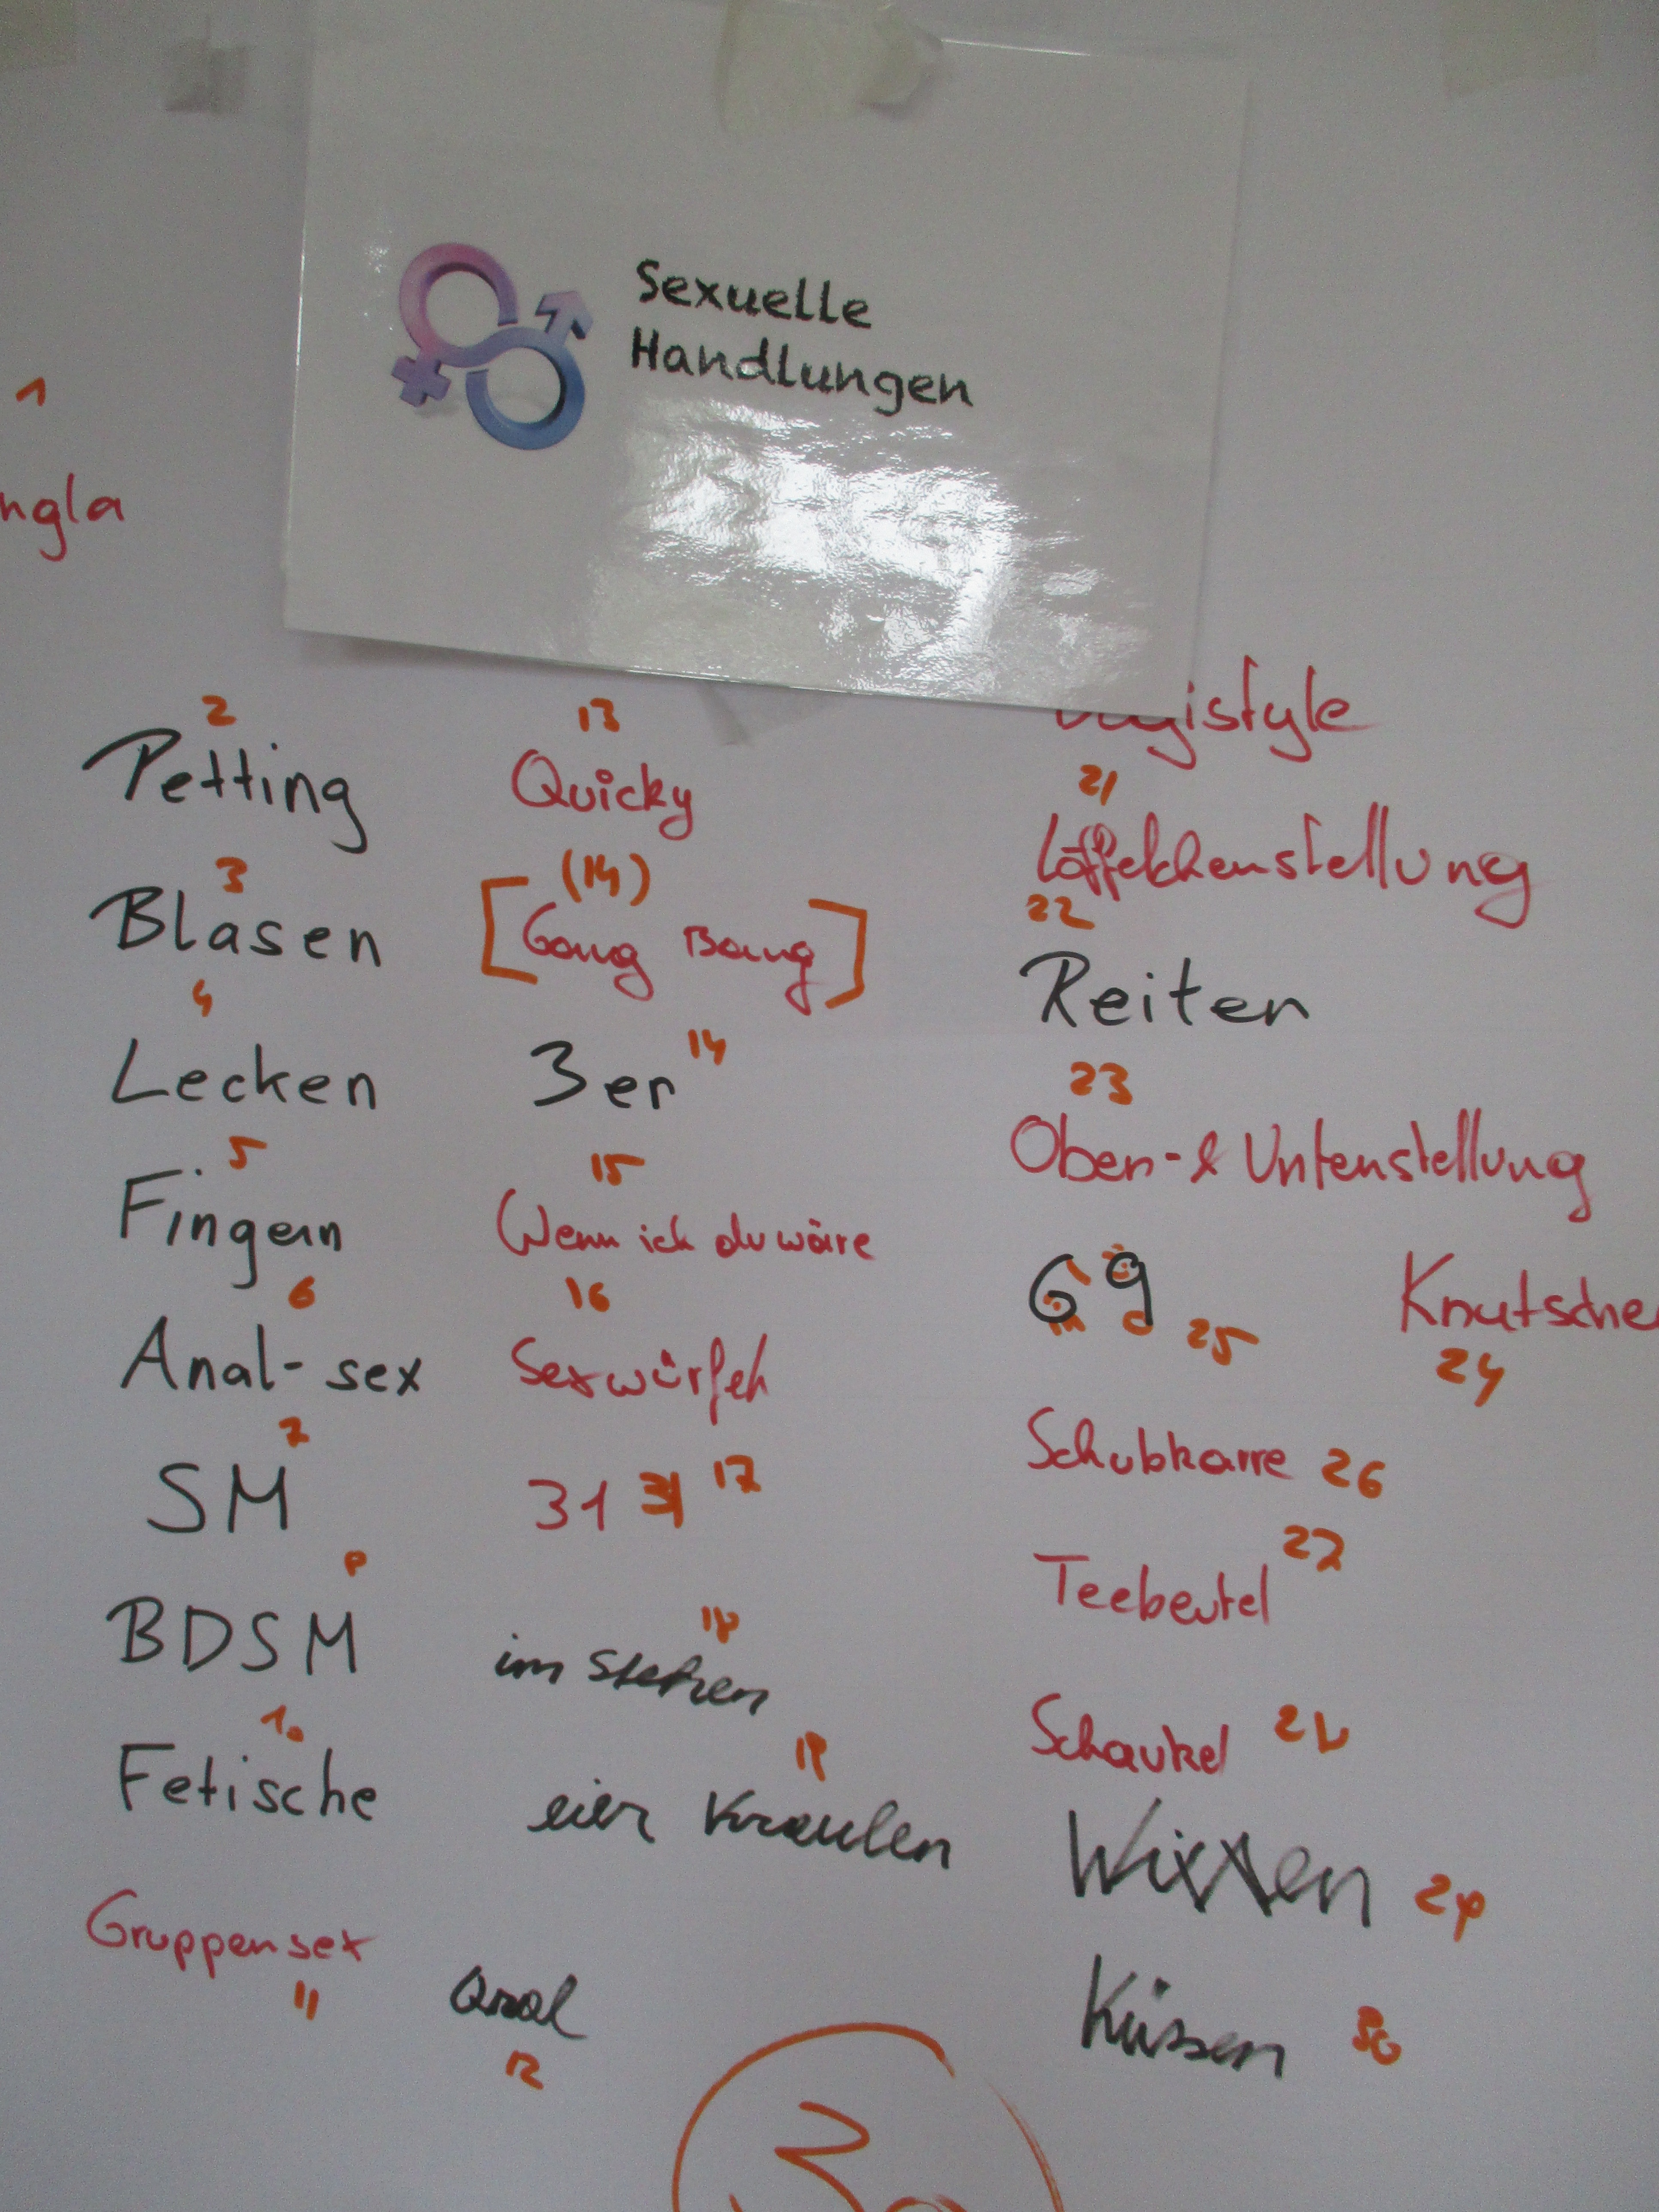 Sexuelle
Handlungen
1
ngla
2
Petting
3
Blasen
4
Lecken
5
Fingern
6
Anal-sex
7
SM
8
BDSM
10
Fetische
Gruppensex
11
13
Quicky
(14)
[Gang Bang]
3er 14
15
Wenn ich du wäre
16
Sexwürfel
31 31 17
18
im stehen
19
eier Kraulen
oral
12
gistyle
21
Löffelchenstellung
22
Reiten
23
Oben-& Untenstellung
69 25
Knutsche
24
Schubkarre 26
Teebeutel 27
Schaukel 28
Wixxen 29
Küssen 30